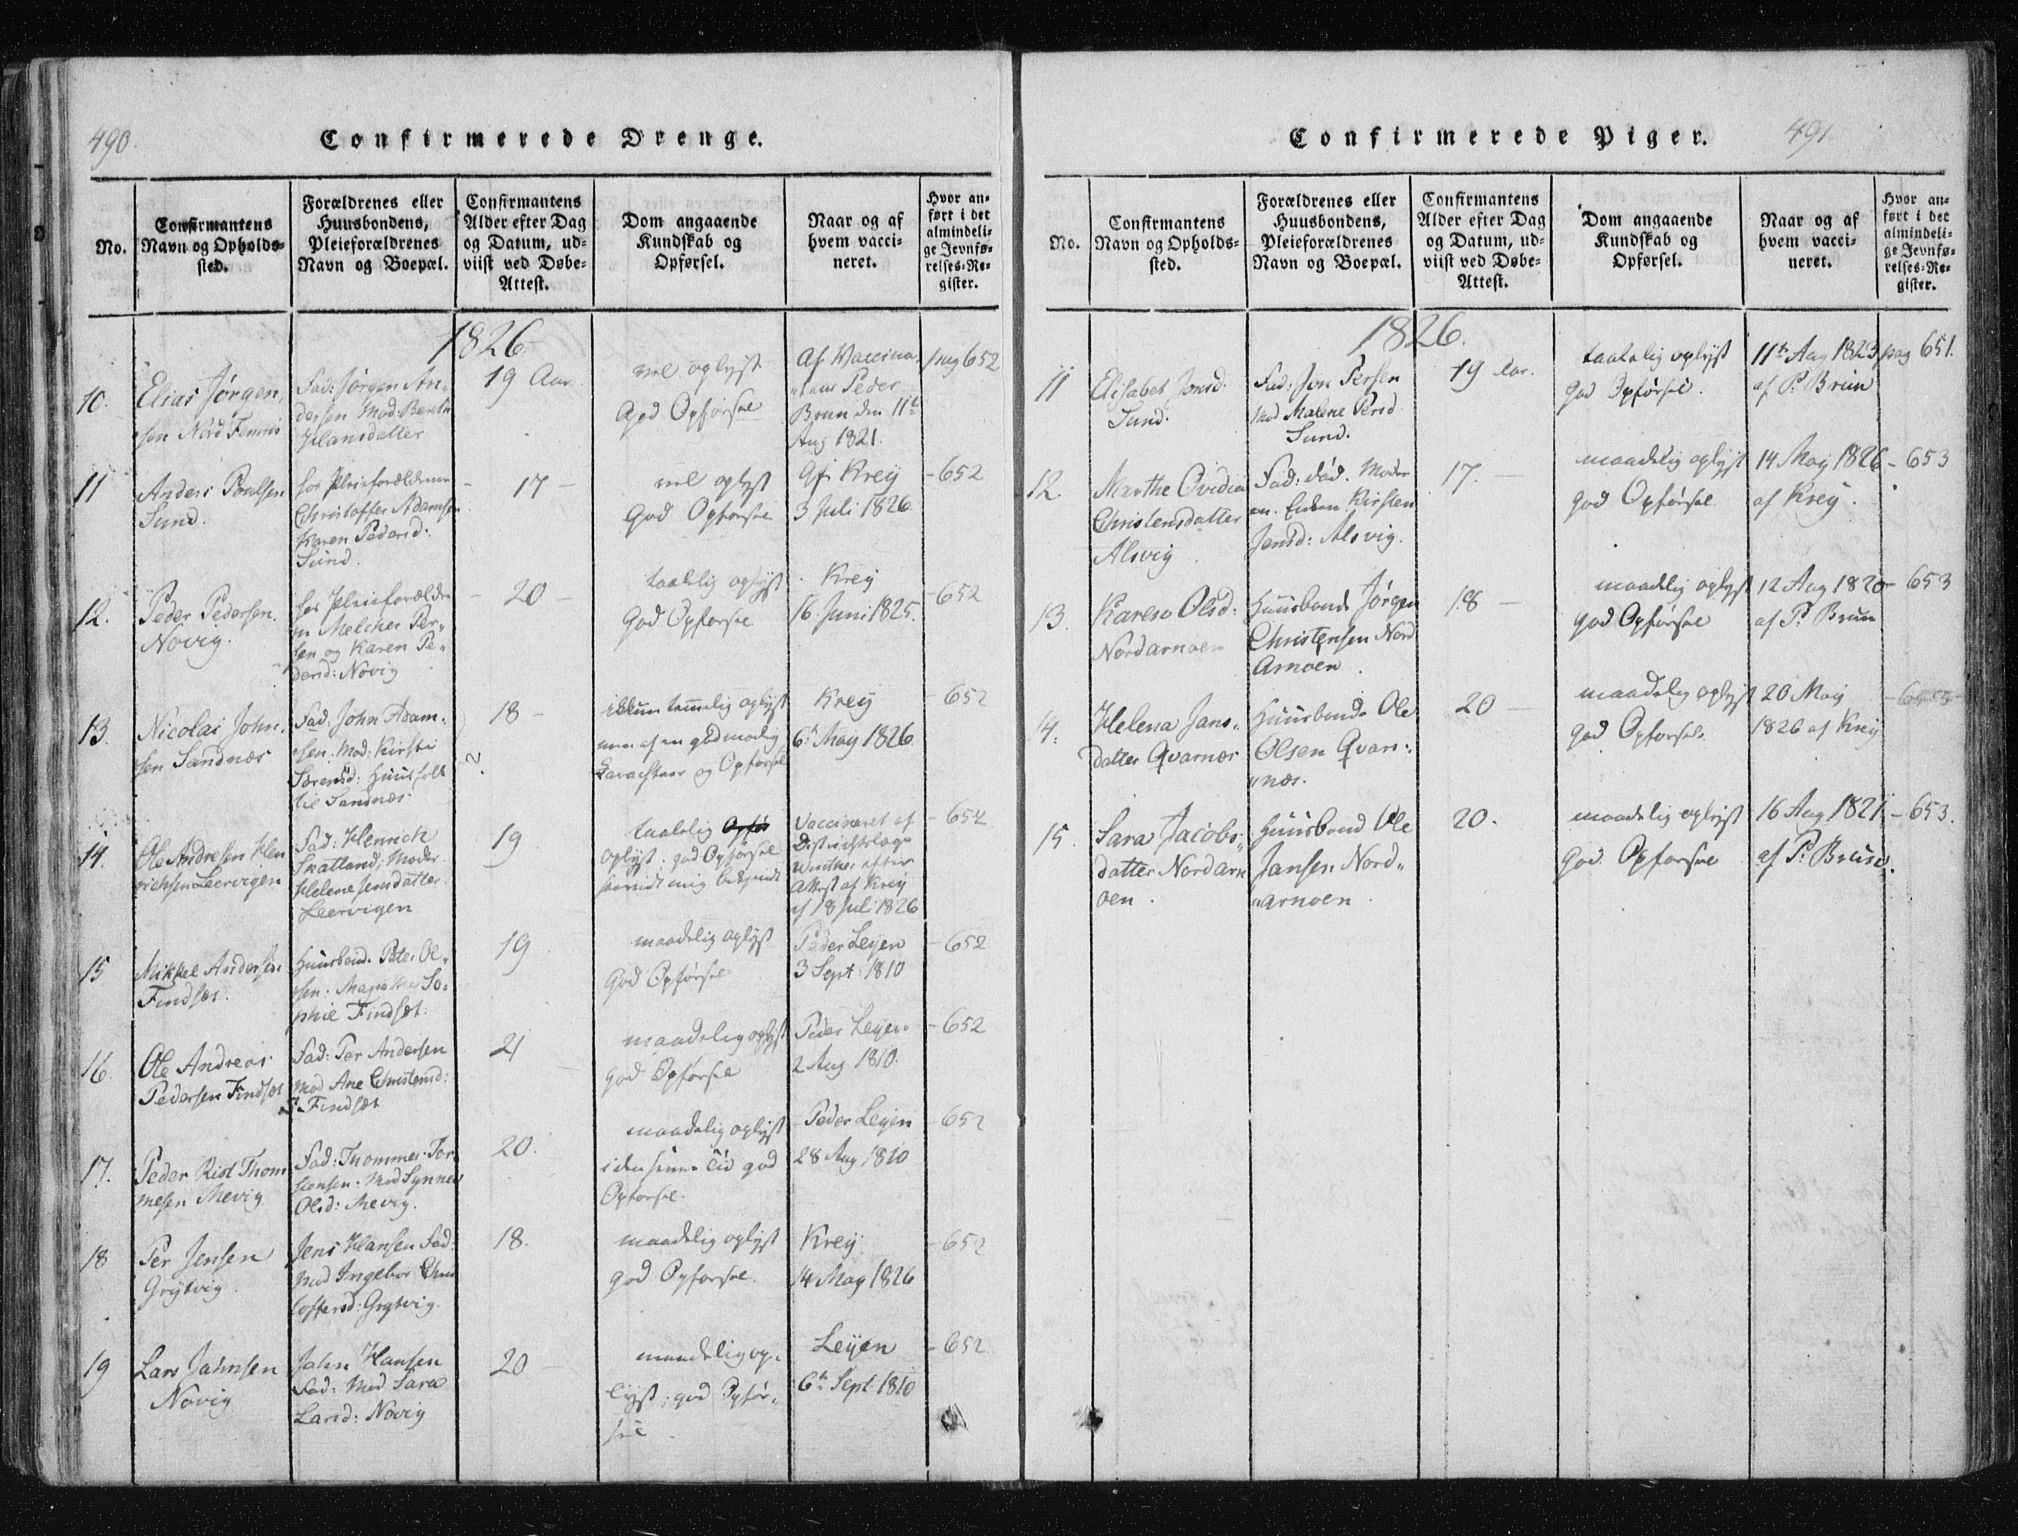 490.
Confirmerede Drenge.
No.
Confirmantens
Navn og Opholds-
sted.
Forældrenes eller
Huusbondens,
Pleieforældrenes
Navn og Boepæl.
Confirmantens
Alder efter Dag
og Datum, ud-
viist ved Døbe-
Attest.
Dom angaaende
Kundskab og
Opførsel.
Naar og af
hvem vacci-
neret.
Hvor an-
ført i det
almindeli-
ge Jevnfø-
relses-Re-
gister.
1826
10.
Elias Jørgen,
sen Nord Femris
Fad: Jørgen An,
dersen Mod: Bereth
Hansdatter
19 Aar.
vel oplyst
God Opførsel
Af Vaccina,
Peder
Brun den 11te
Aug 1821.
pag 652
11
Anders Poulsen
Sund.
hos Pleieforældrene
Christoffer Adamsen
Karen Pedersd:
Sund.
- 17 -
vel oplyst
God Opførsel
Af Krey
3 Juli 1826
- 652
12.
Peder Pedersen.
Novig.
hos Pleieforældre
ne Melcher Per-
sen og Karen Pe-
dersd: Novig
- 20 -
taalelig oplyst
God Opførsel
Krey
16 Juni 1825.
- 652
13.
Nicolai John,
sen Sandnæs
Fad: John Adam-
sen. Mod: Kirsti
Sørensd: Huusfolk
til Sandnæs
18 -
ikkun temmelig oplyst
men af en godmodig
Karachteer og Opførsel
Krey
6te May 1826
- 652
14.
Ole Andresen Hen
richsen Leervigen
Fad: Henrich
Skatland; Moder
Helene Jensdatter
Leervigen
19
taalelig Opfør
oplyst; god Opførsel
saavidt mig bekjendt
Vaccineret af
Districtslæge
Winther efter
Attest af Krey
af 18 Juli 1826
- 652
15
Mikkel Andersen
Findsæt.
Huusbond. Peter Ol-
sen. So-
phie Findsæt.
19.
maadelig oplyst
God Opførsel
Peder Leyen
3 Sept: 1810
- 652
16.
Ole Andreas
Pedersen Findsæt
Fad: Per Andersen
Mod Ane Christensd:
Findsæt
21
maadelig oplyst
god Opførsel
Peder Leyen
2 Aug 1810.
- 652
17.
Peder Rist Thom
mesen Mevig
Fad: Thommes Tor
stensen: Mod Synnev
Olsd: Mevig.
20.
maadelig oplyst
i den senere Tid god
Opførsel.
Peder Leyen
28 Aug 1810
- 652
18
Per Jensen
Grytvig.
Jens Hansen Fad:
Mod Ingebor Chris
toffersd: Grytvig
18.
maadelig oplyst
god Opførsel.
Krey
14 May 1826
- 652
19
Lars Jahnsen
Novig
Jahn Hansen
Fad: Mod Sara
Larsd: Novig
20 -
maadelig op,
lyst; god Opfør-
sel
Leyen
6te Sept: 1810
- 652
Confirmerede Piger.
491.
No.
Confirmantens
Navn og Opholds-
sted.
Forældrenes eller
Huusbondens,
Pleieforældrenes
Navn og Boepæl.
Confirmantens
Alder efter Dag
og Datum, ud-
viist ved Døbe-
Attest.
Dom angaaende
Kundskab og
Opførsel.
Naar og af
hvem vacci-
neret.
Hvor an-
ført i det
almindeli-
ge Jevnfø-
relses-Re-
gister.
1826.
11
Elisabet Jonsd.
Sund.
Fad: Jon Persen
Mod Malene Persd.
Sund.
19 Aar.
taalelig oplyst
god Opførsel.
11te Aug 1823
af P. Brun
pag 651.
12.
Marthe Ovidia
Christensdatter
Alsvig
Fad: død. Moder
en Enken Kirsten
Jensd: Alsvig.
17. -
maadelig oplyst
god Opførsel
14 May 1826
af Krey.
- 653
13.
Karen Olsd:
Nordarnoen
Huusbond Jørgen
Christensen Nord
Arnoen.
18 -
maadelig oplyst
god Opførsel
12 Aug 1820
af P. Brun
- 653
14.
Helena Jans-
datter Qvarnæs
Huusbond Ole
Olsen Qvar-
næs.
20 -
maadelig oplyst
god Opførsel.
20 May
1826 af Krey
- 653
15.
Sara Jacobs-
datter Nordarn
oen.
Huusbond Ole
Jansen Nord-
arnoen.
20.
maadelig oplyst
god Opførsel
16 Aug 1821
af P. Brun.
- 653.